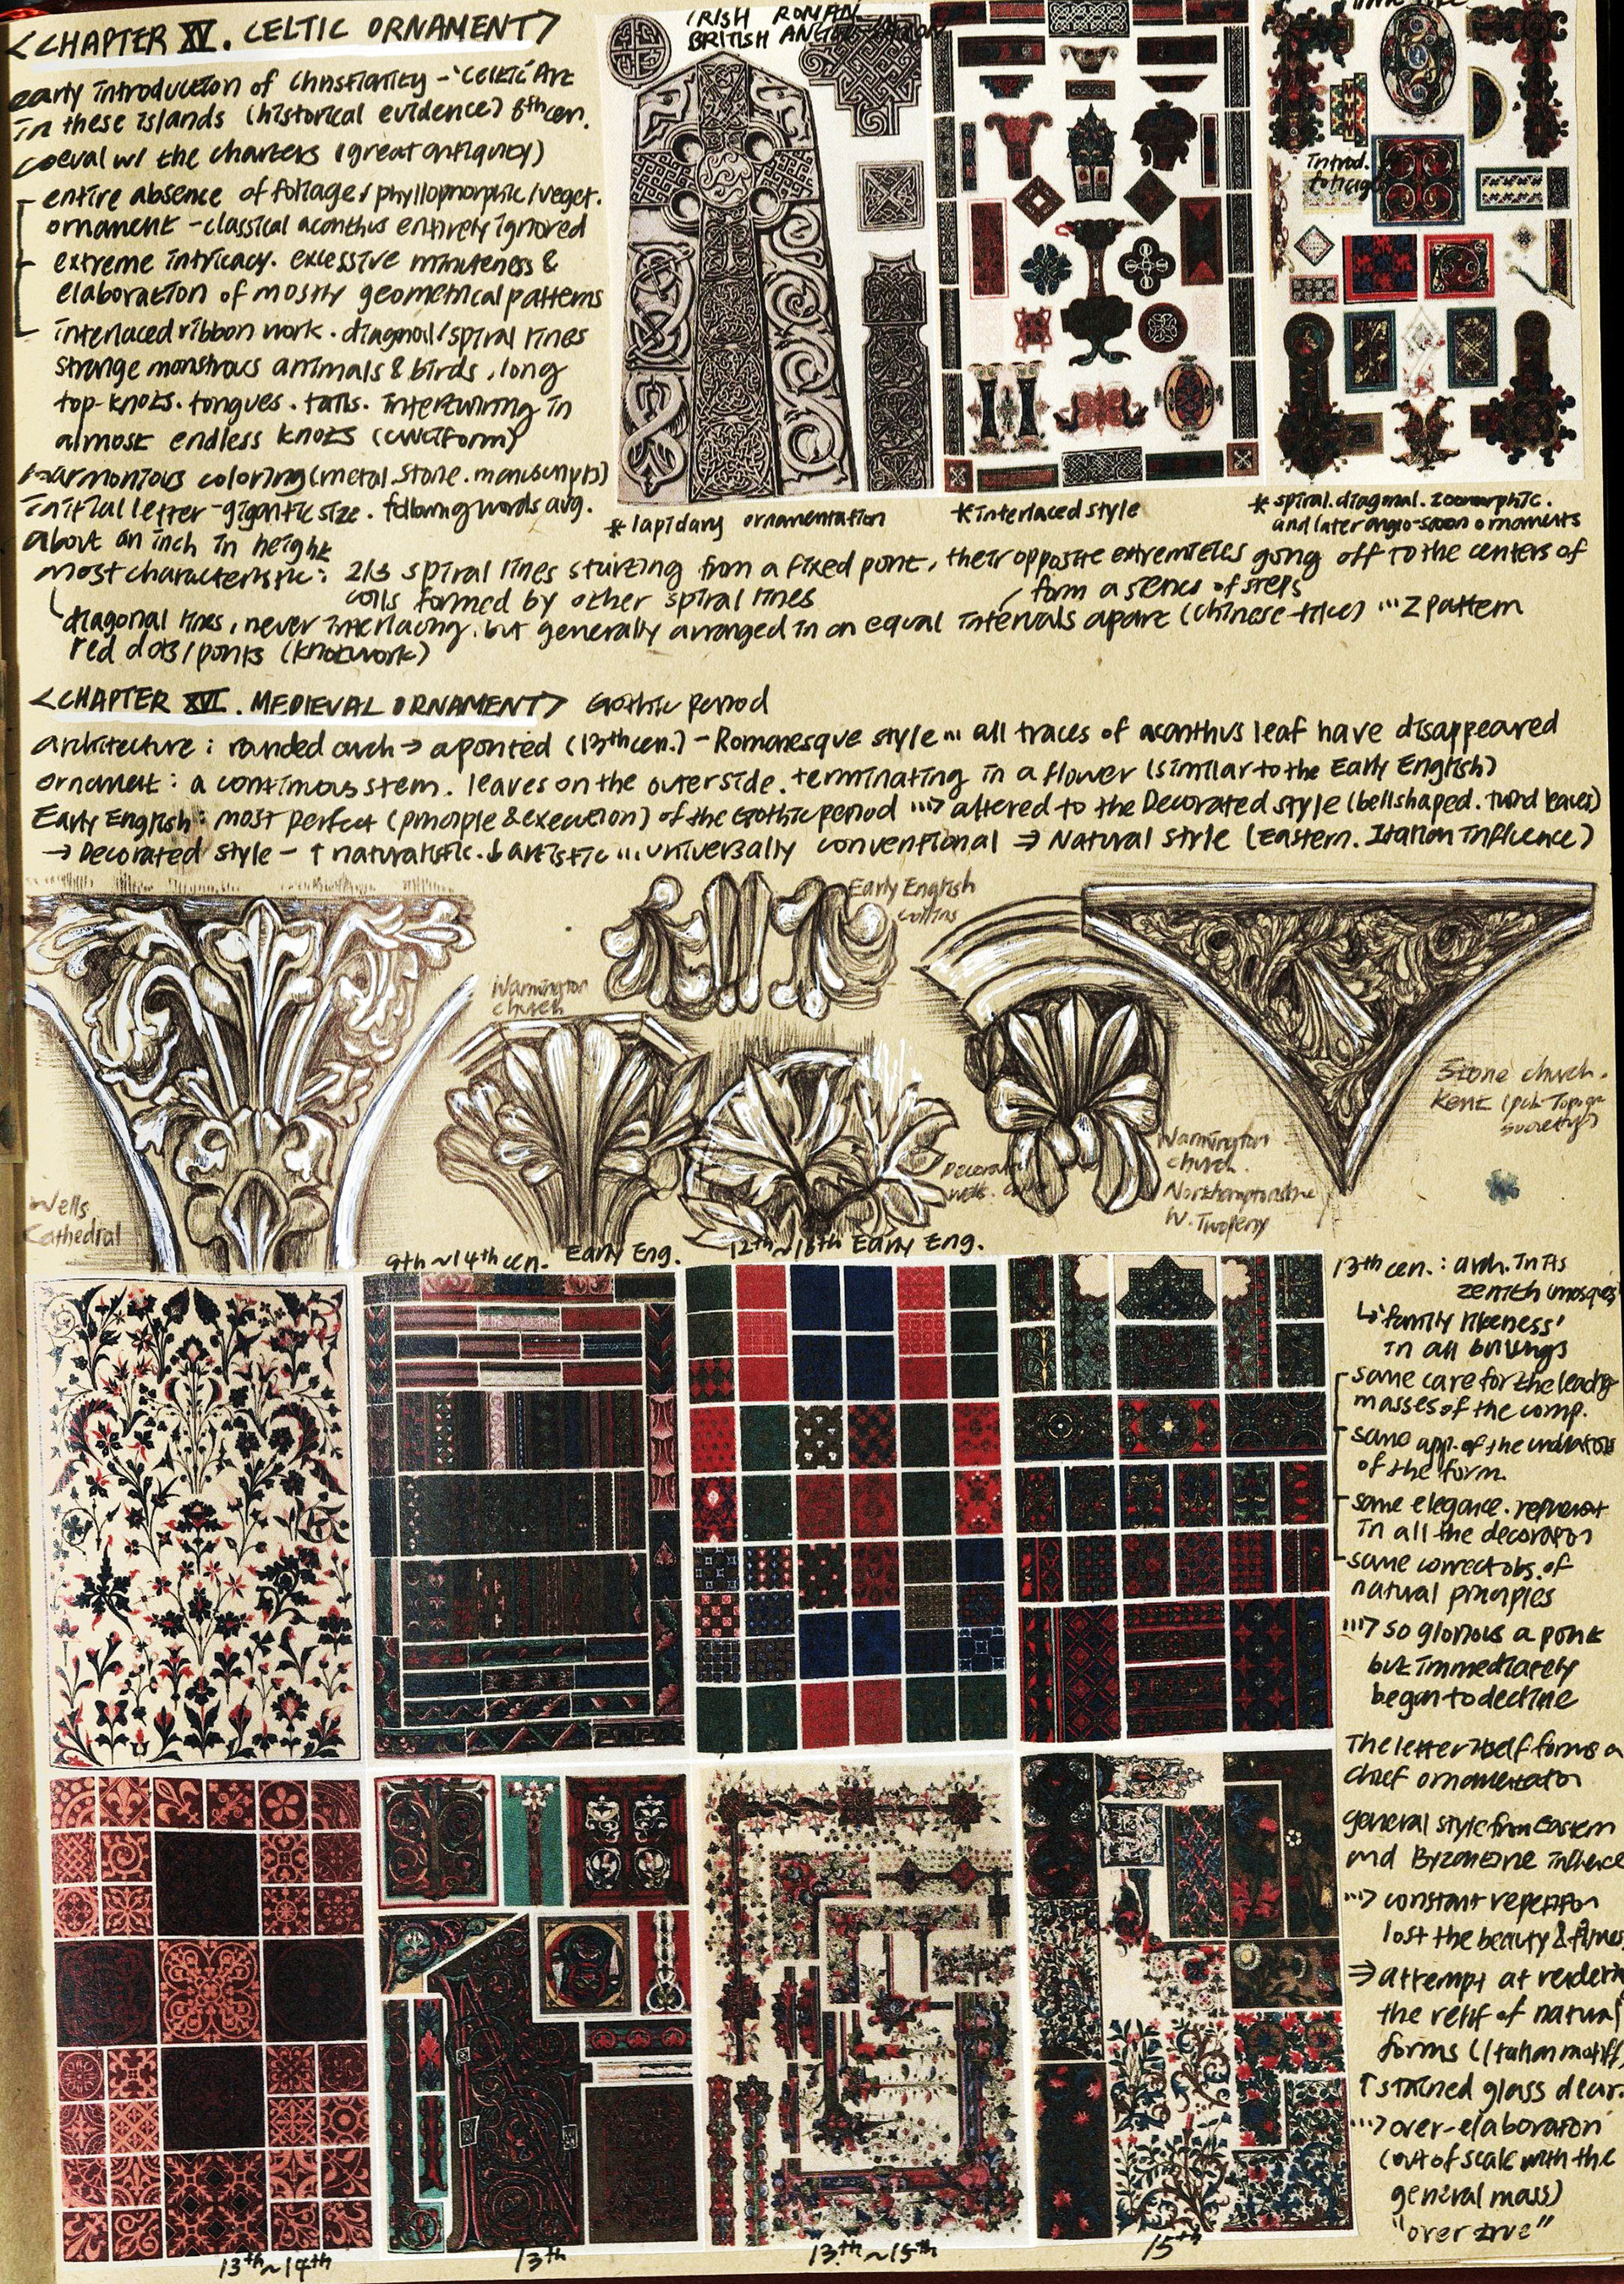 <CHAPTER XV. CELTIC ORNAMENT>
early introduction of christianity - 'Celtic' Art
in these islands (historical evidence) 8th cen.
coeval w/ the charters (great antiquity)
entire absence of foliages/phyllophorphic/veget.
ornament - classical acanthus entirely ignored
extreme intricacy. excessive minuteness &
elaboration of mostly geometrical patterns
interlaced ribbon work. diagnoal/spiral lines
strange monstrous animals & birds, long
top-knots. tongues. tails. intertwining in
almost endless knots
harmonious coloring (metal. stone. manuscripts)
initial letter - gigantic size. following words avg.
about an inch in height
IRISH ROMAN
BRITISH ANGLO-SAXON
Introd.
foliage
* lapidary ornamentation
* interlaced style
* spiral. diagonal. zoomorphic.
and later anglo-saxon ornaments
most characteristic: 2/3 spiral lines starting from a fixed point, their opposite extremeties going off to the centers of
coils formed by other spiral lines
form a series of steps
diagonal lines, never interlacing, but generally arranged in an equal intervals apart (chinese-like) ... Z pattern
red dots/points (knotwork)
<CHAPTER XVI. MEDIEVAL ORNAMENT> Gothic period
architecture: rounded arch → a pointed (13th cen.) - Romanesque style ... all traces of acanthus leaf have disappeared
ornament: a continuous stem. leaves on the outer side. terminating in a flower (similar to the Early English)
Early English: most perfect (principle & execution) of the Gothic period ...> altered to the Decorated style (bellshaped. leaves)
→ Decorated style - ↑ naturalistic. ↓ artistic ... universally conventional ⇒ Natural style (Eastern. Italian influence)
Early English
Warmington
church
Wells
Cathedral
Warmington
church.
Northamptonshire
W. Twopeny
Stone church.
Kent
9th ~ 14th cen. Early Eng.
12th ~ 16th Early Eng.
13th cen.: arch. in its
zenith (mosques
↳ 'family likeness'
in all buildings
same care for the leading
masses of the comp.
same app. of the
of the form.
same elegance.
in all the decoration
same correct obs. of
natural principles
...> so glorious a point
but immediately
began to decline
The letter itself forms a
chief ornamentation
general style from Eastern
and Byzantine influence
...> constant repetition
lost the beauty &
⇒ attempt at
the relief of natural
forms (Italian motif)
↑ stained glass
...> over-elaboration
(out of scale with the
general mass)
13th ~ 14th
13th
13th ~ 15th
15th